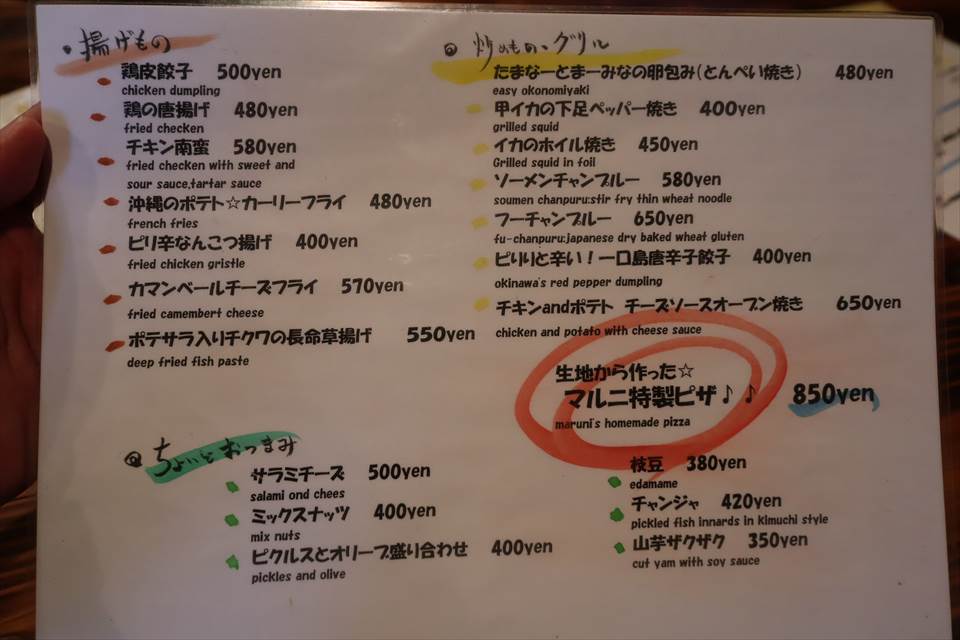 ・揚げもの
鶏皮餃子 500yen
chicken dumpling
鶏の唐揚げ 480yen
fried checken
チキン南蛮 580yen
fried checken with sweet and
sour sauce,tartar sauce
沖縄のポテト☆カーリーフライ 480yen
french fries
ピリ辛なんこつ揚げ 400yen
fried chicken gristle
カマンベールチーズフライ 570yen
fried camembert cheese
ポテサラ入りチクワの長命草揚げ 550yen
deep fried fish paste
炒めもの、グリル
たまなーとまーみなの卵包み(とんぺい焼き) 480yen
easy okonomiyaki
甲イカの下足ペッパー焼き 400yen
grilled squid
イカのホイル焼き 450yen
Grilled squid in foil
ソーメンチャンプルー 580yen
soumen chanpuru:stir fry thin wheat noodle
フーチャンプルー 650yen
fu-chanpuru:japanese dry baked wheat gluten
ピリリと辛い!一口島唐辛子餃子 400yen
okinawa's red pepper dumpling
チキンandポテト チーズソースオーブン焼き 650yen
chicken and potato with cheese sauce
生地から作った☆
マルニ特製ピザ♪♪ 850yen
maruni's homemade pizza
ちょいとおつまみ
サラミチーズ 500yen
salami ond chees
ミックスナッツ 400yen
mix nuts
ピクルスとオリーブ盛り合わせ 400yen
pickles and olive
枝豆 380yen
edamame
チャンジャ 420yen
pickled fish innards in kimuchi style
山芋ザクザク 350yen
cut yam with soy sauce